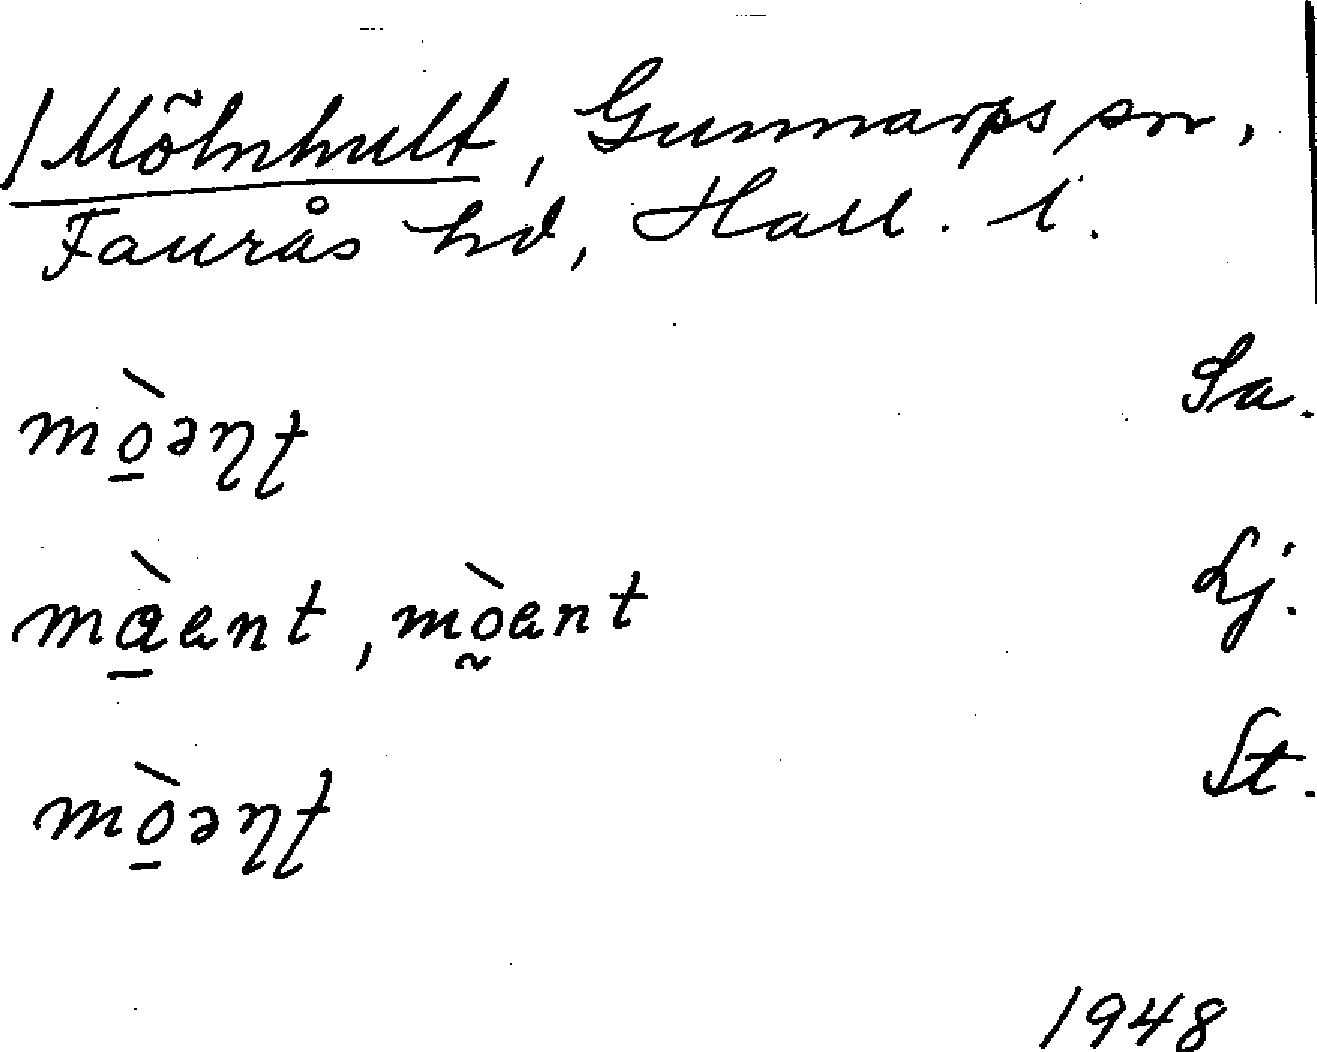 /Mölnhult, Gunnarps sn,
Faurås hd, Hall. l.
mò̲əɳʈ Sa.
mà̲ent, mò̰ent Lj.
mò̲əɳʈ St.
1948